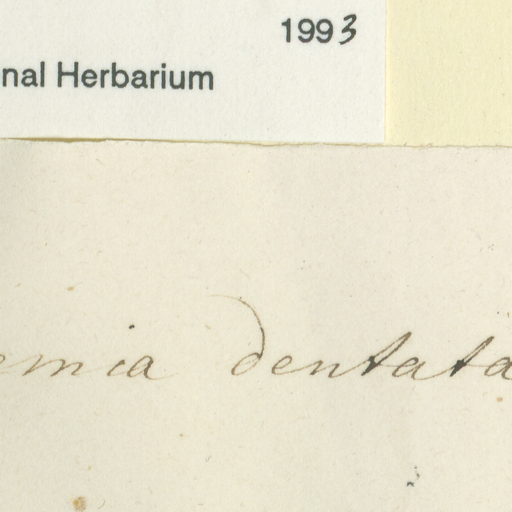 1993
nal Herbarium
emia dentata